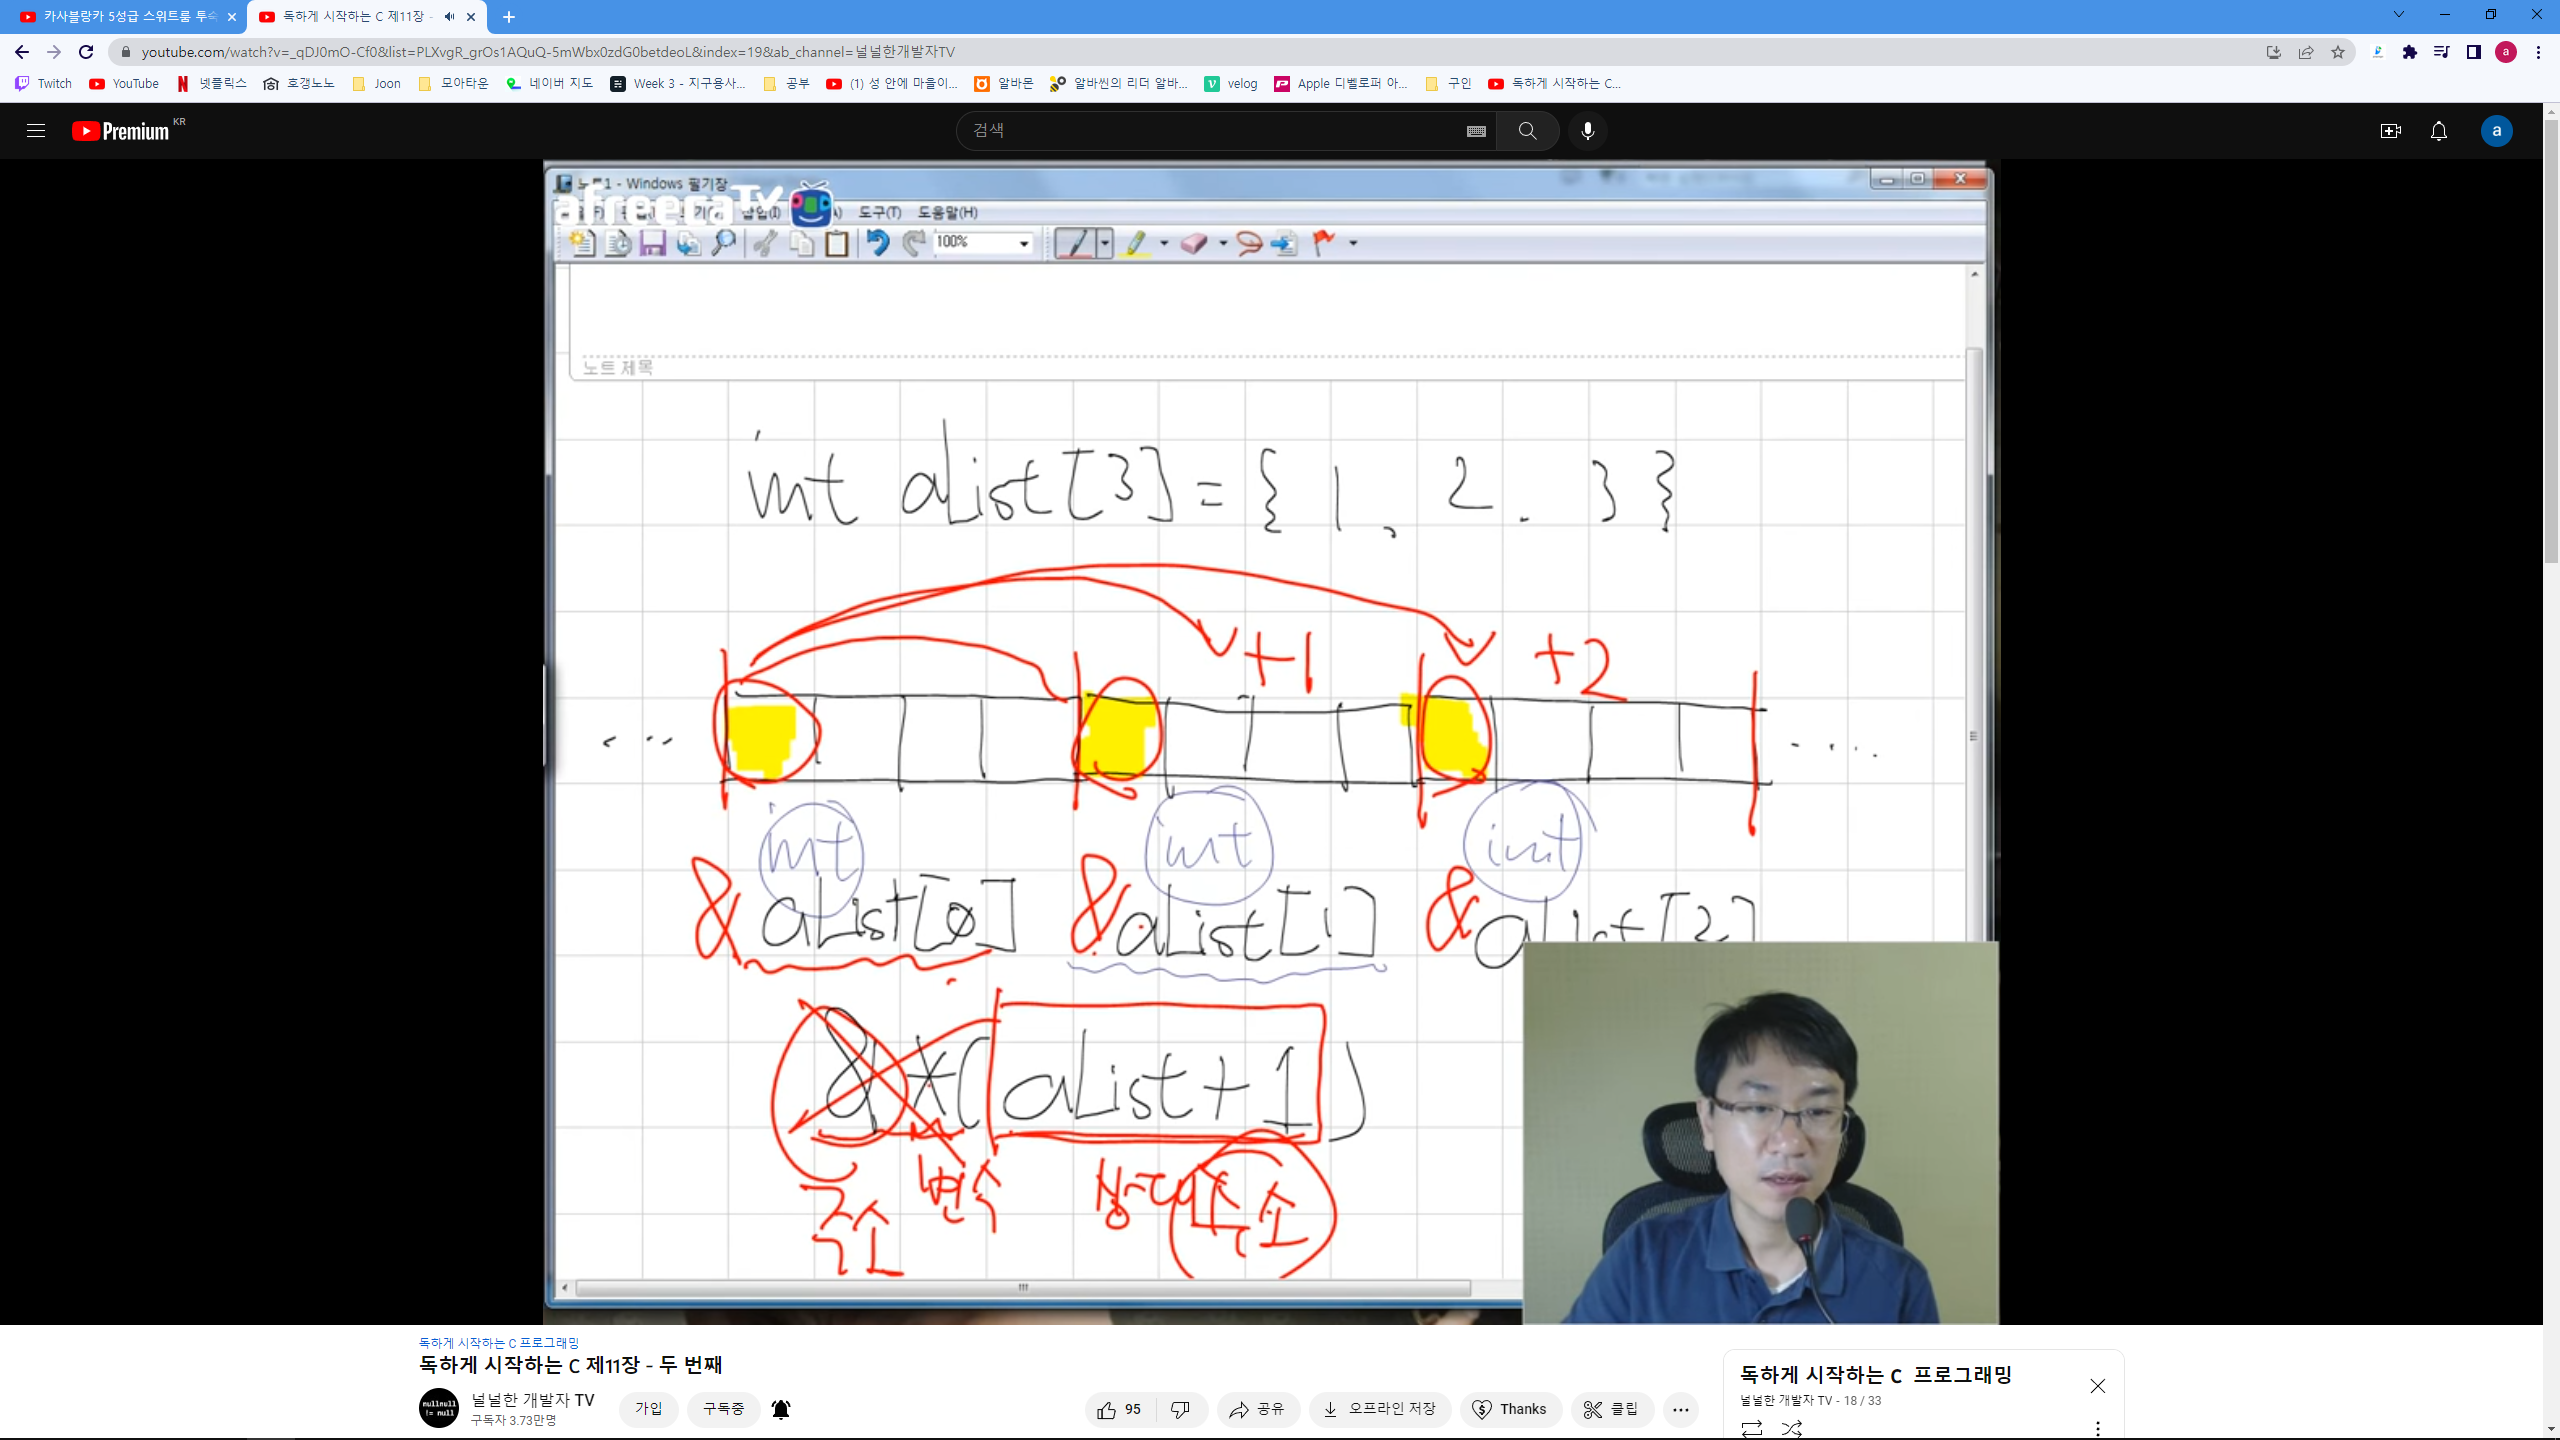 카사블랑카 5성급 스위트룸 투숙
독하게 시작하는 C 제11장 -
youtube.com/watch?v=_qDJ0mO-Cf0&list=PLXvgR_grOs1AQuQ-5mWbx0zdG0betdeoL&index=19&ab_channel=널널한개발자TV
Twitch YouTube 넷플릭스 호갱노노 Joon 모아타운 네이버 지도 Week 3 - 지구용사... 공부 (1) 성 안에 마을이... 알바몬 알바씬의 리더 알바... velog Apple 디벨로퍼 아... 구인 독하게 시작하는 C...
Premium KR
검색
a
노트1 - Windows 필기장
afreecaTV
삽입(I) 도구(T) 도움말(H)
100%
노트 제목
int aList[3] = { 1, 2. 3 }
+1 +2
... ....
int int int
&aList[0] &aList[1] &aList[2]
&*(aList+1)
주소 변수 상대주소
독하게 시작하는 C 프로그래밍
독하게 시작하는 C 제11장 - 두 번째
nullnull
!= null
널널한 개발자 TV
구독자 3.73만명
가입 구독중
95 공유 오프라인 저장 Thanks 클립
독하게 시작하는 C 프로그래밍
널널한 개발자 TV - 18 / 33